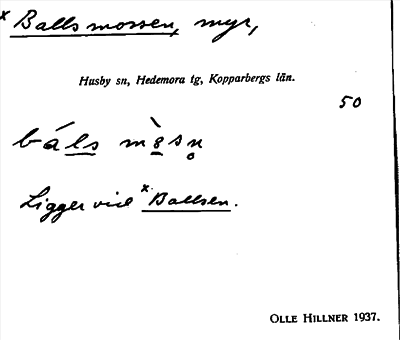 x Ballsmossen, myr,
Husby sn, Hedemora tg, Kopparbergs län.
50
báls mòsn
Ligger vid x Ballsen.
OLLE HILLNER 1937.